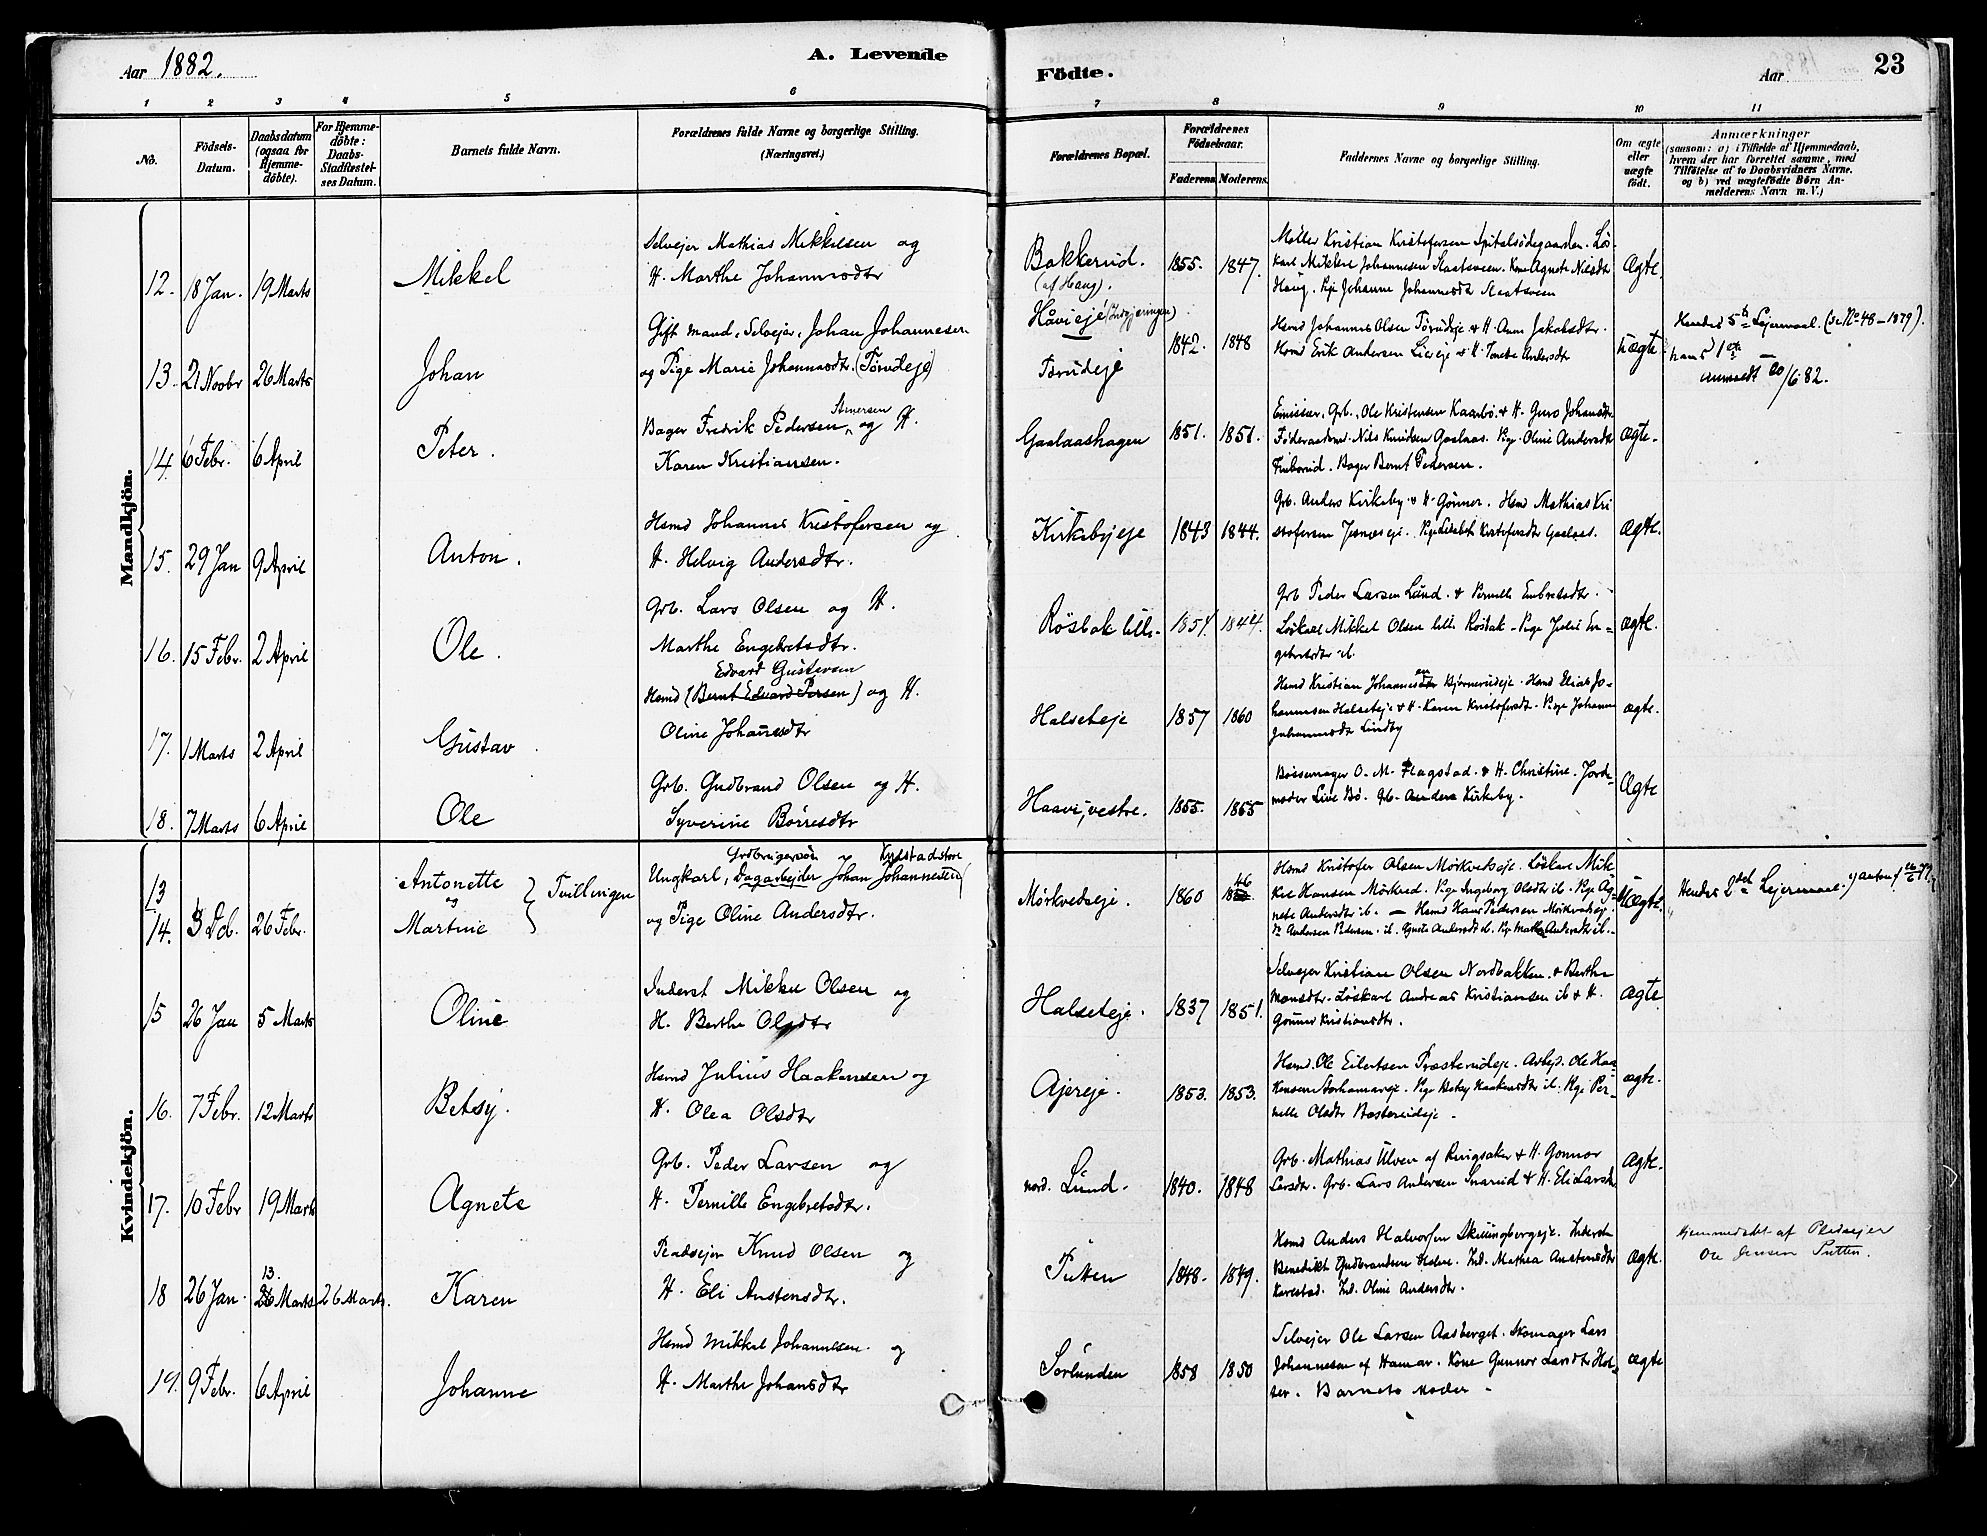 Aar 1882.
A. Levende
Födte.
Aar
23
1 2 3 4 5 6 7 8 9 10 11
No.
Födsels-Datum.
Daabsdatum (ogsaa for Hjemme-döbte).
For Hjemme-döbte: Daabs-Stadfæstel-ses Datum.
Barnets fulde Navn.
Forældrenes fulde Navne og borgerlige Stilling.
(Næringsvei.)
Forældrenes Bopæl.
Forældrenes Födselsaar.
Faderens Moderens.
Faddernes Navne og borgerlige Stilling.
Om ægte eller uægte födt.
Anmærkninger
(saasom: a) i Tilfælde af Hjemmedaab,
hvem der har forrettet samme, med
Tilföielse af to Daabsvidners Navne,
og b) ved uægtefödte Börn An-
melderens Navn m. V.)
Mandkjön.
12. 18 Jan. 19 Marts Mikkel
Selvejer Mathias Mikkelsen og
H. Marthe Johannesdtr
Bakkerud. (af Haug). 1855. 1847.
Møller Kristian Kristofersen Spitalsødegaarden. Lös-
karl Mikkel Johannesen Staatsveen. Kone Agnete Nilsdtr
Haug. Pige Johanne Johannesdtr Staatsveen
Ægte.
13. 21 Novbr 26 Marts Johan
Gift mand, Selvejer, Johan Johannesen
og Pige Marie Johannesdtr. (Törudeje)
Håvieje
Törudeje 1842. 1848
Hsmd Johannes Olsen Törudeje & H. Anne Jakobsdtr.
Hsmd Erik Andersen Lieeje & H. Andersdtr
Uægte
Hendes 5te Lejermaal. (se No 48 - 1879).
hans 1ste
anmeldt 20/6 82.
14. 6 Febr. 6 April Peter.
Bager Fredrik Pedersen, og H.
Karen Kristiansen.
Gaalaashagen 1851. 1851.
Emissær, Grb. Ole Kristensen Kaarbö & H. Guro Johansdtr.
Föderaadsmd Nils Knudsen Gaalaas. Pige Oline Andersdtr
Bager Bernt Pedersen.
ægte.
15. 29 Jan 9 April Anton.
Hsmd Johannes Kristofersen og
H. Helvig Andersdtr.
Kirkebyeje 1843 1844.
Grb. Anders Kirkeby & H. Gönner. Hsmd Mathias Kri
stofersen Jesneseje. Pige Lisabet Kristofersdtr Gaalaas.
Ægte.
16. 15 Febr. 2 April Ole.
Grb. Lars Olsen og H.
Marthe Engebretsdtr.
Rösbak lille. 1854. 1844.
Grb Peder Larsen Lund & Pernille Embretsdtr.
Löskarl Mikkel Olsen lille Rösbak. Pige Julie En-
gebretsdtr ib.
ægte.
17. 1 Marts 2 April Gustav
Edvard Gustavsen
Hsmd (Bernt Edvard Persen) og H.
Oline Johansdtr
Halseteje 1857 1860
Hsmd Kristian Johannesen Björnerudeje. Hsmd Elias Jo-
hannesen Halseteje & H. Karen Kristofersdtr. Pige Johanne
Johannesdtr Lindby
ægte.
18. 7 Marts 6 April Ole
Grb. Gudbrand Olsen og H.
Syverine Börresdtr
Haavi, vestre. 1855. 1855
Bössemager O. M. Flagstad & H. Christine. Jorde-
moder Live Bö. Grb. Anders Kirkeby.
Ægte
Kvindekjön.
13
14. 3 Dcb. 26 Febr. Antonette og Martine } Tvillinger
Grdbrugersön Kyststadstore
Ungkarl, Dagarbejder Johan Johannesen
og Pige Oline Andersdtr.
Mörkvedseje. 1860 46
Hsmd Kristofer Olsen Mörkvedseje. Löskarl Mik-
kel Hansen Mörkved. Pige Ingeborg Olsdtr ib. Pige Ag-
nete Andersdtr ib. — Hsmd Hans Pedersen Mörkvedseje.
Do Andersen Pedersen ib. Agnete Andersdtr ib. Pige Andersdtr ib.
Uægte.
Hendes 2det Lejermaal.
15 26 Jan 5 Marts Oline
Inderst Mikkel Olsen og
H. Berthe Olsdtr
Halseteje. 1837 1851.
Selvejer Kristian Olsen Nordbakken & Berthe
Monsdtr. Löskarl Andreas Kristiansen ib & H.
Gönner Kristiansdtr.
ægte
16. 7 Febr. 12 Marts Betsy.
Hsmd Julius Haakensen og
H. Olea Olsdtr
Ajereje. 1853. 1853.
Hsmd. Ole Eilertsen Præsterudeje. Arbejd. Ole Haa-
kensen Storhamareje. Pige Betsy Haakensdtr ib. Pige Per-
nille Olsdtr Bæsterudeje.
ægte.
17. 10 Febr 19 Marts Agnete
Grb. Peder Larsen og
H. Pernille Engebretsdtr.
nord. Lund. 1840. 1848
Grb. Mathias Ulven af Ringsaker & H. Gonnor
Larsdtr. Grb. Lars Andersen Snarud & H. Eli Larsdtr
Ægte.
18 26 Jan. 13. 26 Marts 26 Marts. Karen
Pladsejer Knud Olsen og
H. Eli Austensdtr.
Putten 1848. 1849.
Hsmd Anders Halvorsen Skillingbergeje. Inderst
Benedikt Gudbrandsen Holere. Ind. Mathea Austensdtr
Karestad. Ind. Oline Andersdtr.
Ægte.
Hjemmedöbt af Pladsejer
Ole Jensen Putten.
19. 9 Febr. 6 April Johanne
Hsmd Mikkel Johannesen og
H. Marthe Johansdtr
Sörlunden 1858 1850
Selvejer Ole Larsen Aasberget. Skomager Lars
Johannesen af Hamar. Kone Gunnor Larsdtr Hol-
ser. Barnets Moder.
ægte